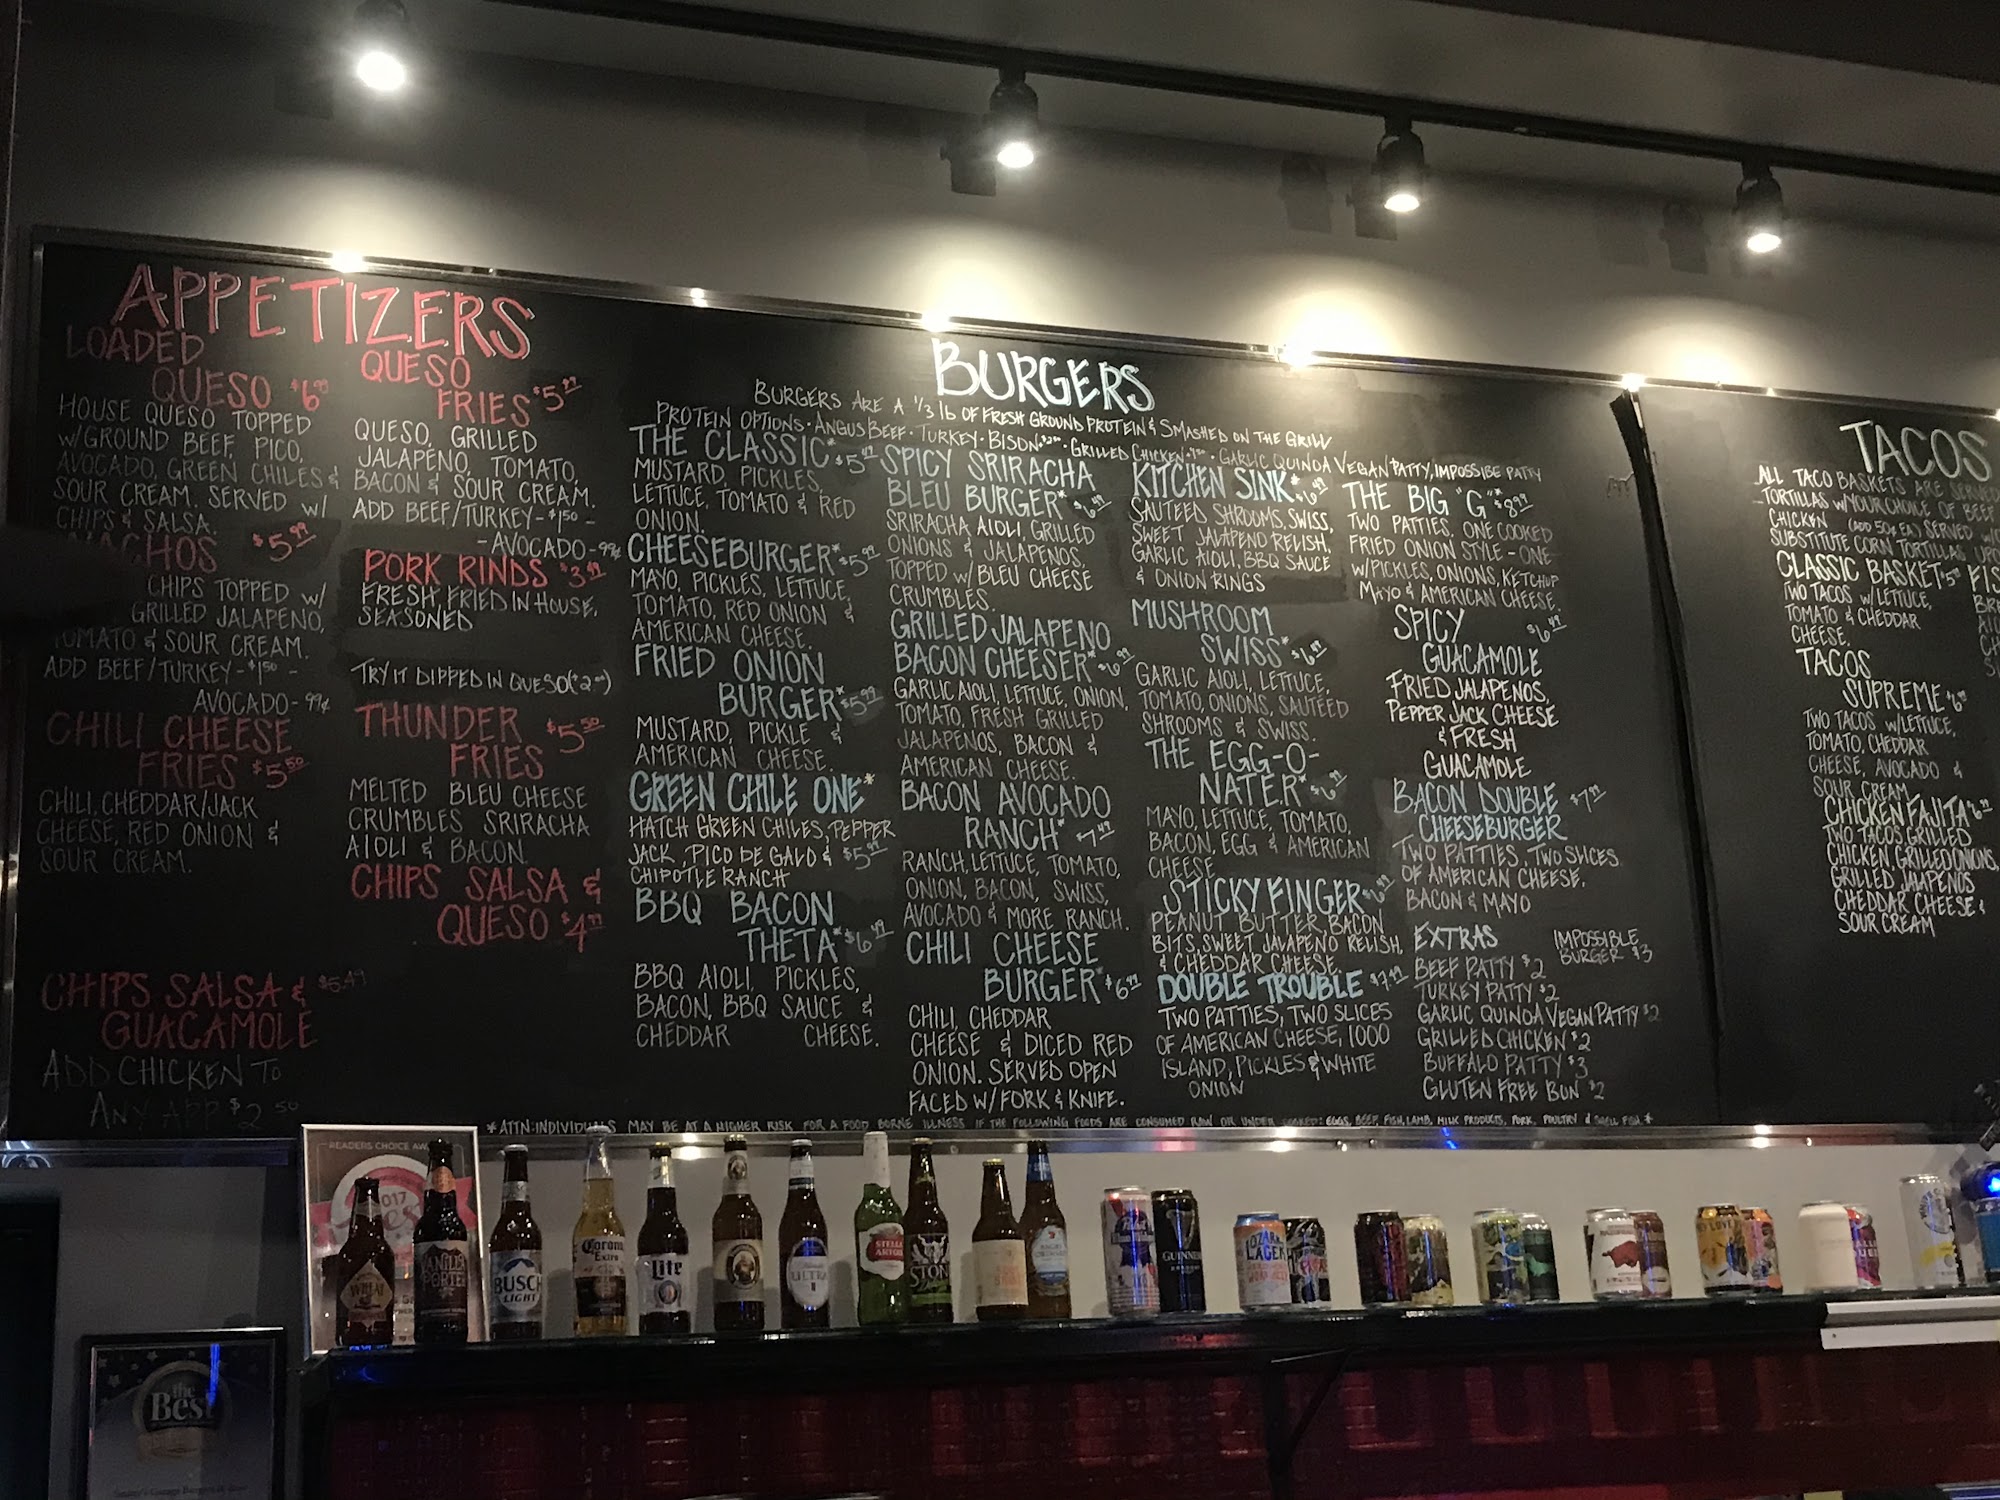 APPETIZERS
LOADED
QUESO $6.99
HOUSE QUESO TOPPED
W/GROUND BEEF, PICO,
AVOCADO, GREEN CHILES &
SOUR CREAM. SERVED W/
CHIPS & SALSA.
NACHOS $5.99
CHIPS TOPPED W/
GRILLED JALAPENO,
TOMATO & SOUR CREAM.
ADD BEEF/TURKEY-$1.50-
AVOCADO-99¢
CHILI CHEESE
FRIES $5.50
CHILI, CHEDDAR/JACK
CHEESE, RED ONION &
SOUR CREAM.
CHIPS SALSA & $5.49
GUACAMOLE
ADD CHICKEN TO
ANY APP $2.50
QUESO
FRIES $5.99
QUESO, GRILLED
JALAPENO, TOMATO,
BACON & SOUR CREAM.
ADD BEEF/TURKEY-$1.50-
-AVOCADO-99¢
PORK RINDS $3.49
FRESH FRIED IN HOUSE,
SEASONED
TRY IT DIPPED IN QUESO
THUNDER $5.50
FRIES
MELTED BLEU CHEESE
CRUMBLES SRIRACHA
AIOLI & BACON.
CHIPS SALSA &
QUESO $4.99
BURGERS
BURGERS ARE A 1/3 lb OF FRESH GROUND PROTEIN & SMASHED ON THE GRILL
PROTEIN OPTIONS · ANGUS BEEF · TURKEY · BISON · GRILLED CHICKEN · GARLIC QUINOA VEGAN PATTY, IMPOSSIBE PATTY
THE CLASSIC* $5.49
MUSTARD, PICKLES,
LETTUCE, TOMATO & RED
ONION.
CHEESEBURGER* $5.99
MAYO, PICKLES, LETTUCE,
TOMATO, RED ONION &
AMERICAN CHEESE.
FRIED ONION
BURGER* $5.99
MUSTARD, PICKLE &
AMERICAN CHEESE.
GREEN CHILE ONE*
HATCH GREEN CHILES, PEPPER
JACK, PICO DE GALO & $5.99
CHIPOTLE RANCH
BBQ BACON
THETA* $6.49
BBQ AIOLI, PICKLES,
BACON, BBQ SAUCE &
CHEDDAR CHEESE.
SPICY SRIRACHA
BLEU BURGER* $6.49
SRIRACHA AIOLI, GRILLED
ONIONS & JALAPENOS,
TOPPED W/BLEU CHEESE
CRUMBLES.
GRILLED JALAPENO
BACON CHEESER* $6.49
GARLIC AIOLI, LETTUCE, ONION,
TOMATO, FRESH GRILLED
JALAPENOS, BACON &
AMERICAN CHEESE.
BACON AVOCADO
RANCH* $7.49
RANCH, LETTUCE, TOMATO,
ONION, BACON, SWISS,
AVOCADO & MORE RANCH.
CHILI CHEESE
BURGER* $6.49
CHILI, CHEDDAR
CHEESE & DICED RED
ONION. SERVED OPEN
FACED W/FORK & KNIFE.
KITCHEN SINK* $6.49
SAUTEED SHROOMS, SWISS,
SWEET JALAPENO RELISH,
GARLIC AIOLI, BBQ SAUCE
& ONION RINGS
MUSHROOM
SWISS* $6.49
GARLIC AIOLI, LETTUCE,
TOMATO, ONIONS, SAUTEED
SHROOMS & SWISS.
THE EGG-O-
NATER* $6.49
MAYO, LETTUCE, TOMATO,
BACON, EGG & AMERICAN
CHEESE
STICKY FINGER $6.49
PEANUT BUTTER, BACON
BITS, SWEET JALAPENO RELISH,
& CHEDDAR CHEESE.
DOUBLE TROUBLE $7.49
TWO PATTIES, TWO SLICES
OF AMERICAN CHEESE, 1000
ISLAND, PICKLES & WHITE
ONION
THE BIG "G"* $8.99
TWO PATTIES, ONE COOKED
FRIED ONION STYLE - ONE
W/PICKLES, ONIONS, KETCHUP
MAYO & AMERICAN CHEESE.
SPICY $6.49
GUACAMOLE
FRIED JALAPENOS,
PEPPER JACK CHEESE
& FRESH
GUACAMOLE
BACON DOUBLE $7.99
CHEESEBURGER
TWO PATTIES, TWO SLICES
OF AMERICAN CHEESE,
BACON & MAYO
EXTRAS
BEEF PATTY $2
TURKEY PATTY $2
GARLIC QUINOA VEGAN PATTY $2
GRILLED CHICKEN $2
BUFFALO PATTY $3
GLUTEN FREE BUN $2
IMPOSSIBLE
BURGER $3
*ATTN: INDIVIDUALS MAY BE AT A HIGHER RISK FOR A FOOD BORNE ILLNESS IF THE FOLLOWING FOODS ARE CONSUMED RAW OR UNDER COOKED: EGGS, BEEF, FISH, LAMB, MILK PRODUCTS, PORK, POULTRY & SHELL FISH.*
TACOS
ALL TACO BASKETS ARE SERVED
TORTILLAS W/YOUR CHOICE OF BEEF
CHICKEN (ADD 50¢ EA) SERVED
SUBSTITUTE CORN TORTILLAS UPO
CLASSIC BASKET
TWO TACOS W/LETTUCE,
TOMATO & CHEDDAR
CHEESE.
TACOS
SUPREME
TWO TACOS W/LETTUCE,
TOMATO, CHEDDAR
CHEESE, AVOCADO &
SOUR CREAM
CHICKEN FAJITA
TWO TACOS, GRILLED
CHICKEN, GRILLED ONIONS,
GRILLED JALAPENOS
CHEDDAR CHEESE &
SOUR CREAM
READERS CHOICE
2017
Best
WHEAT
VANILLA
PORTER
BUSCH
LIGHT
Corona
Extra
Lite
ULTRA
STELLA
ARTOIS
STONE
GUINNESS
LAGER
the
Best